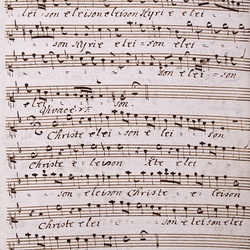 lei son eleison eleison Kyrie e lei
son Kyrie e lei son e lei
son e lei son
elei son.
Vivace
Christe elei son e lei son
Christe e leison Xte e lei
son eleison Christe e leison
Christe elei son eleison elei